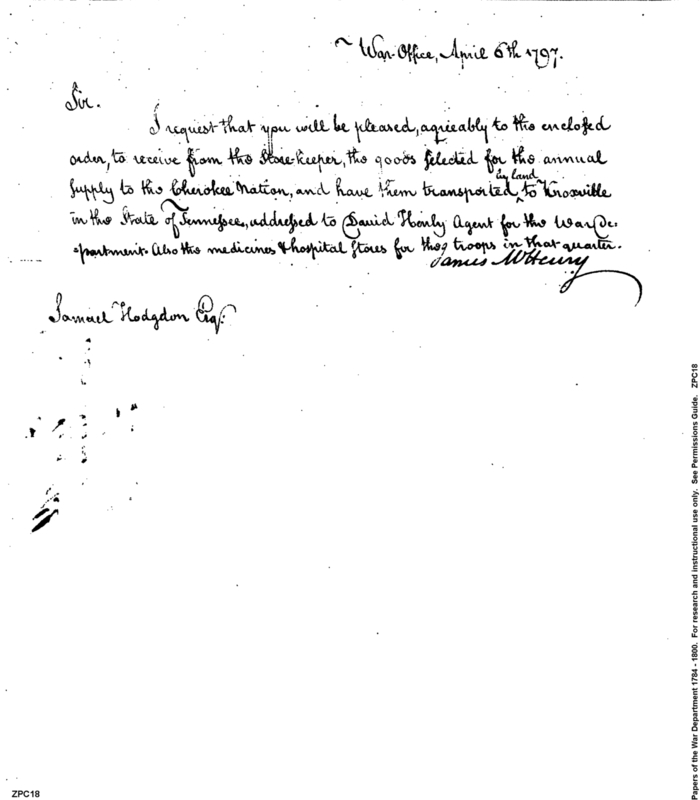 War Office, April 6th 1797.
Sir.
I request that you will be pleased, agreeably to the enclosed
order, to receive from the Store-keeper, the goods selected for the annual
by land
supply to the Cherokee Nation, and have them transported ^ to Knoxville
in the State of Tennessee, addressed to David Henly Agent for the War De:
partment. Also the medicines & hospital stores for the troops in that quarter.
James McHenry
Samuel Hodgdon Esqr.
Papers of the War Department 1784 - 1800. For research and instructional use only. See Permissions Guide. ZPC18
ZPC18